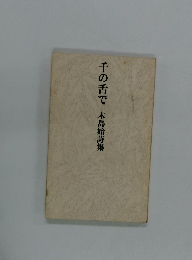 千の舌で 木島始詩集